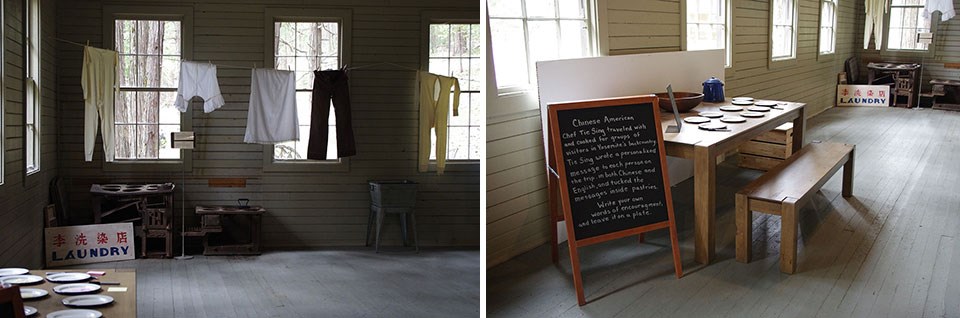 李洗染店
LAUNDRY
Chinese American
Chef Tie Sing traveled with
and cooked for groups of
visitors in Yosemite's backcountry.
Tie Sing wrote a personalized
message to each person on
the trip, in both Chinese and
English, and tucked the
messages inside pastries.
Write your own
words of encouragment,
and leave it on a plate.
李洗染店
LAUNDRY